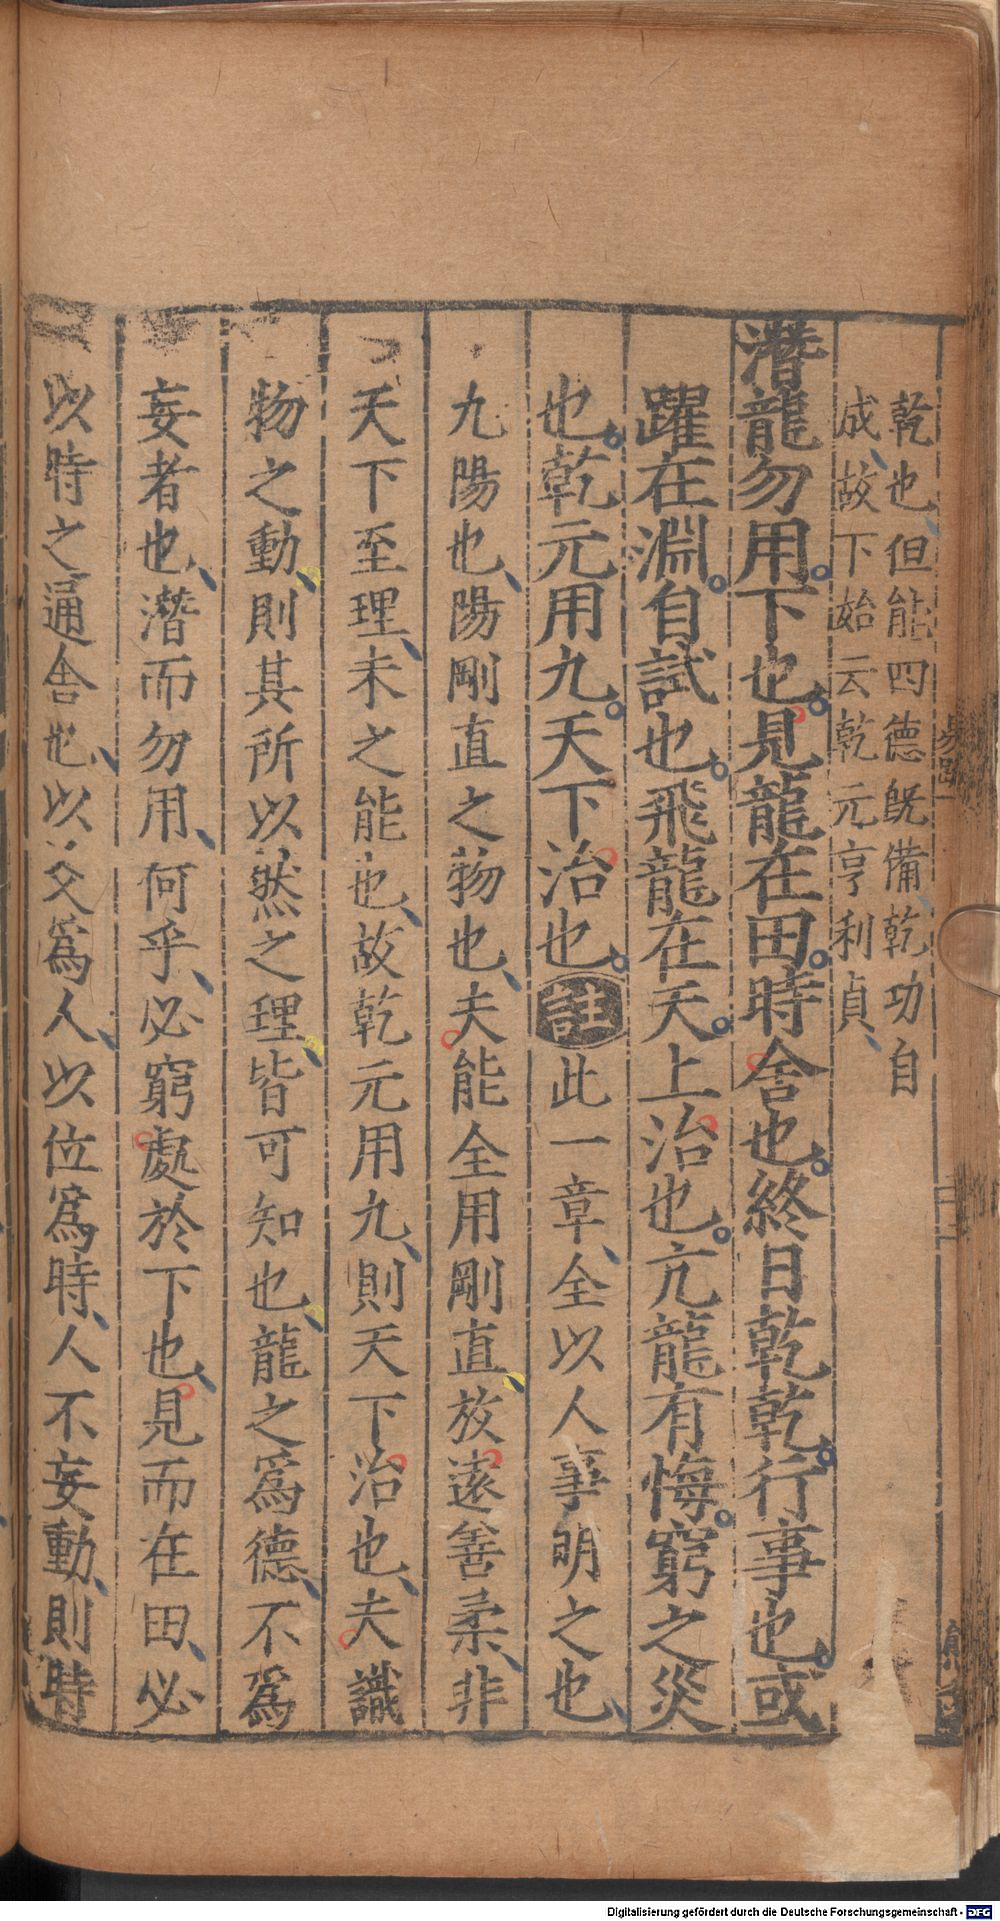 乾也但能四德既備乾功自
成故下始云乾元亨利貞
潛龍勿用下也見龍在田時舍也終日乾乾行事也或
躍在淵自試也飛龍在天上治也亢龍有悔窮之災
也乾元用九天下治也註此一章全以人事明之也
九陽也陽剛直之物也夫能全用剛直放逺善柔非
天下至理未之能也故乾元用九則天下治也夫識
物之動則其所以然之理皆可知也龍之爲德不爲
妄者也潛而勿用何乎必窮處於下也見而在田必
以時之通舍也以爻爲人以位爲時人不妄動則時
Digitalisierung gefördert durch die Deutsche Forschungsgemeinschaft - DFG